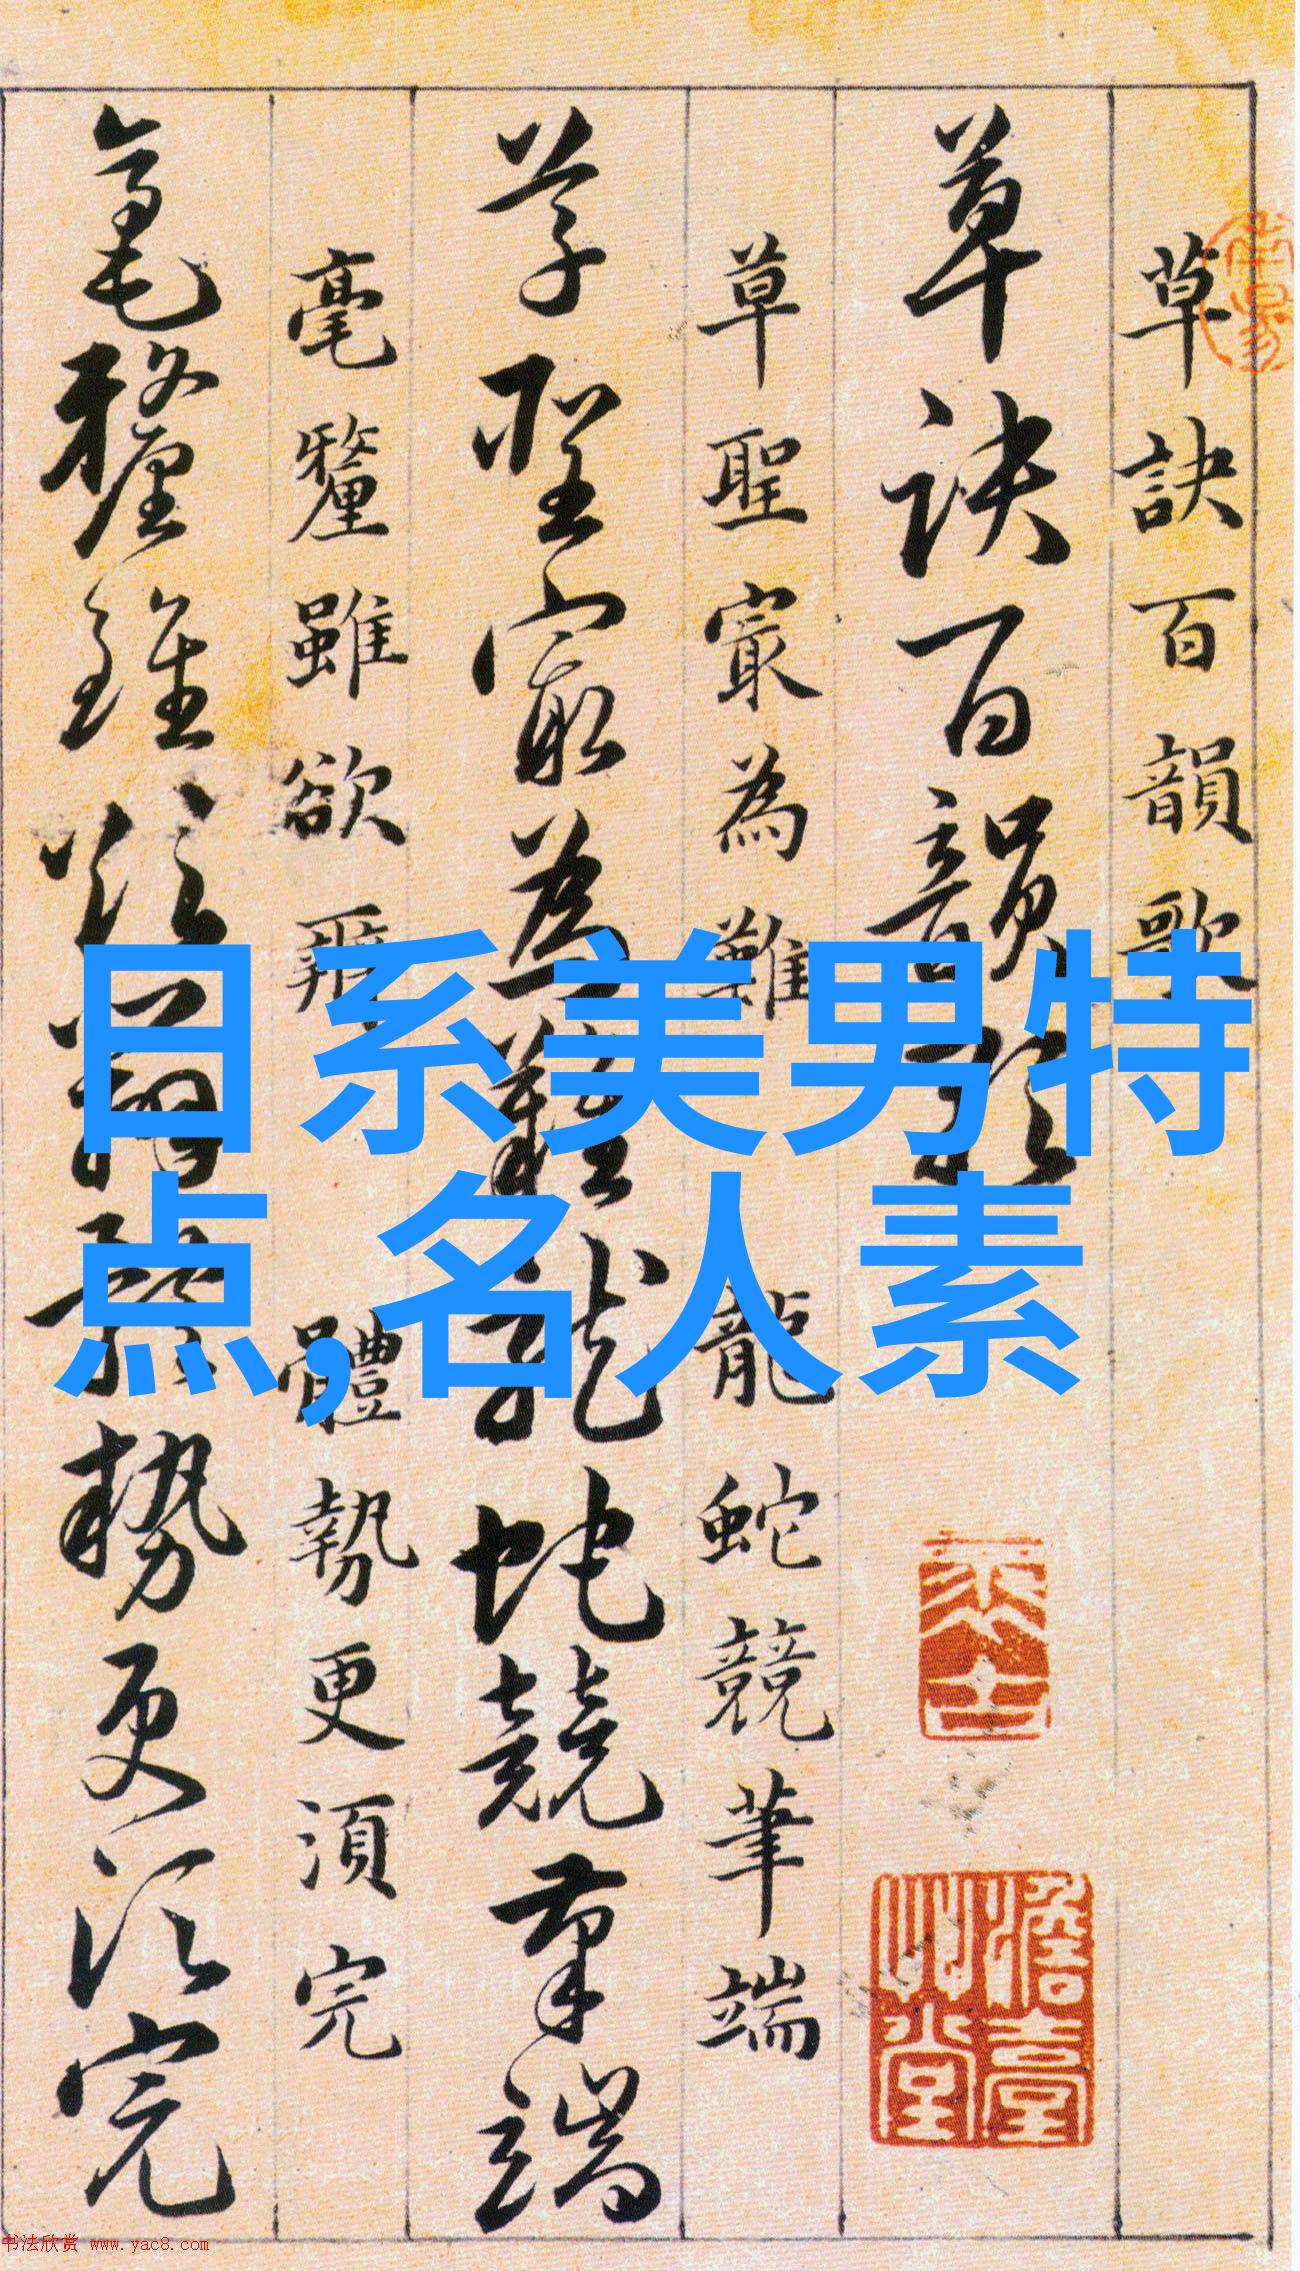 草訣百韻歌
草訣百韻歌
草聖寂為難 龍蛇競筆端
草聖寂為難龍蛇競筆端
毫釐雖欲辨 體勢更須完
毫釐雖欲辨體勢更須完
日系美男特
点,名人素
书法欣赏 www.yac8.com